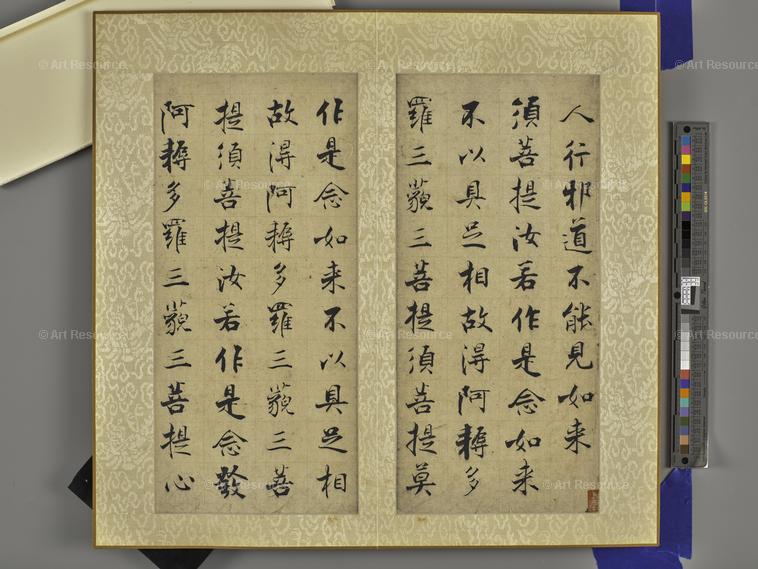 人行邪道不能見如来
須菩提汝若作是念如来
不以具足相故得阿耨多
羅三藐三菩提須菩提莫
作是念如来不以具足相
故得阿耨多羅三藐三菩
提須菩提汝若作是念發
阿耨多羅三藐三菩提心
© Art Resource